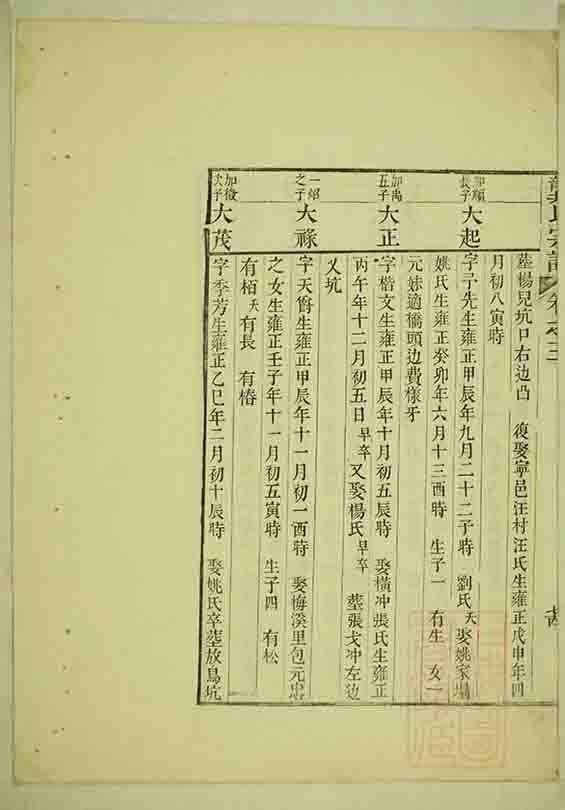 氏宗譜 卷之三
塟楊兒坑口右边凸 復娶寧邑汪村汪氏生雍正戊申年四
月初八寅時
長子大起
字子先生雍正甲辰年九月二十二子時 劉氏夭娶姚家塌
姚氏生雍正癸卯年六月十三酉時 生子一 有生 女一
元妹適橋頭边費様牙
加禹五子大正
字楷文生雍正甲辰年十月初五辰時 娶橫冲張氏生雍正
丙午年十二月初五日早卒又娶楊氏早卒 塟張戈冲左边
乂坑
一紹之子大祿
字天爵生雍正甲辰年十一月初一酉時 娶梅溪里包元忠
之女生雍正壬子年十一月初五寅時 生子四 有松
有栢夭有長 有椿
加徵次子大茂
字季芳生雍正乙巳年二月初十辰時 娶姚氏卒塟放鳥坑